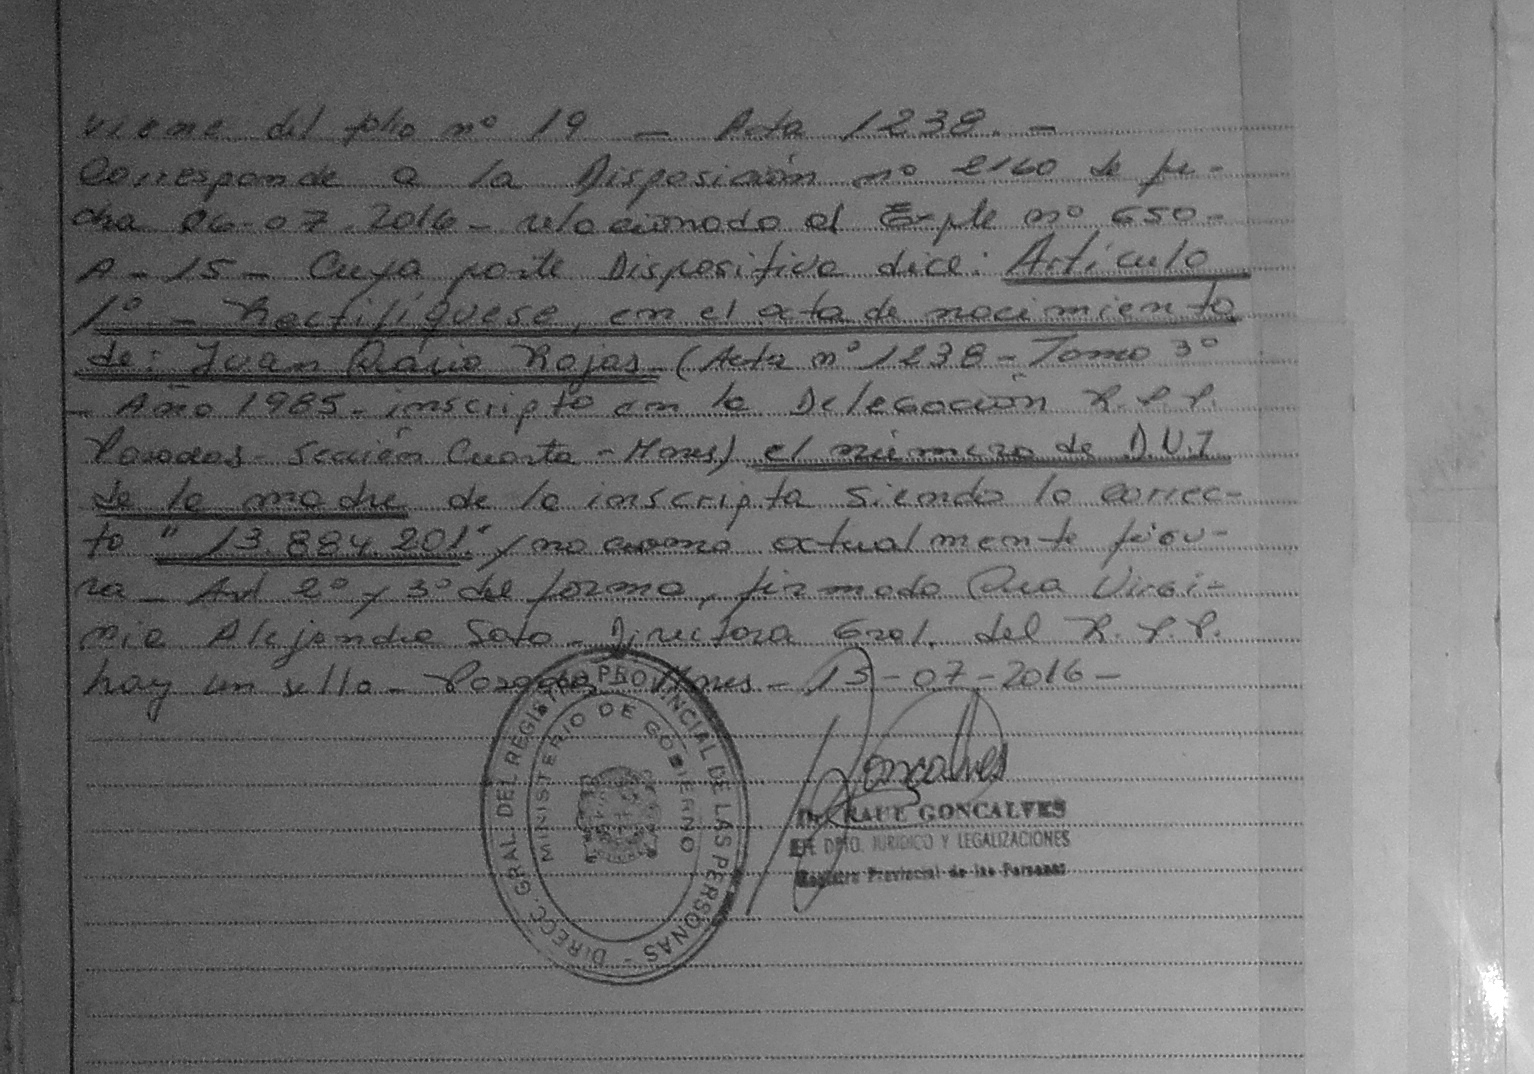 viene del folio nº 19 - Acta 1238. -
Corresponde a la Disposición nº 2160 de fe-
cha 06-07-2016 - relacionado al Expte nº 650-
A - 15 - Cuya parte Dispositiva dice: Artículo
1º - Rectifíquese, en el acta de nacimiento
de: Juan Darío Rojas - (Acta nº 1238 - Tomo 3º
- Año 1985 - inscripto en la Delegación R.P.P.
Posadas - Sección Cuarta - Mnes) el número de D.N.I
de la madre de la inscripta siendo lo correc-
to "13.884.201" y no como actualmente figu-
ra - Art 2º y 3º de forma, firmado Dra Virgi-
nia Alejandra Soto - Directora Gral. del R.P.P.
hay un sello - Posadas, Mnes - 13-07-2016 -
DIRECC. GRAL. DEL REGISTRO PROVINCIAL DE LAS PERSONAS -
MINISTERIO DE GOBIERNO
Goncalves
Dr. RAUL GONCALVES
JEFE DPTO. JURIDICO Y LEGALIZACIONES
Registro Provincial de las Personas